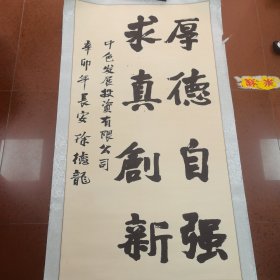 厚德自强
求真創新
中色发展投资有限公司
辛卯年長安徐德龍